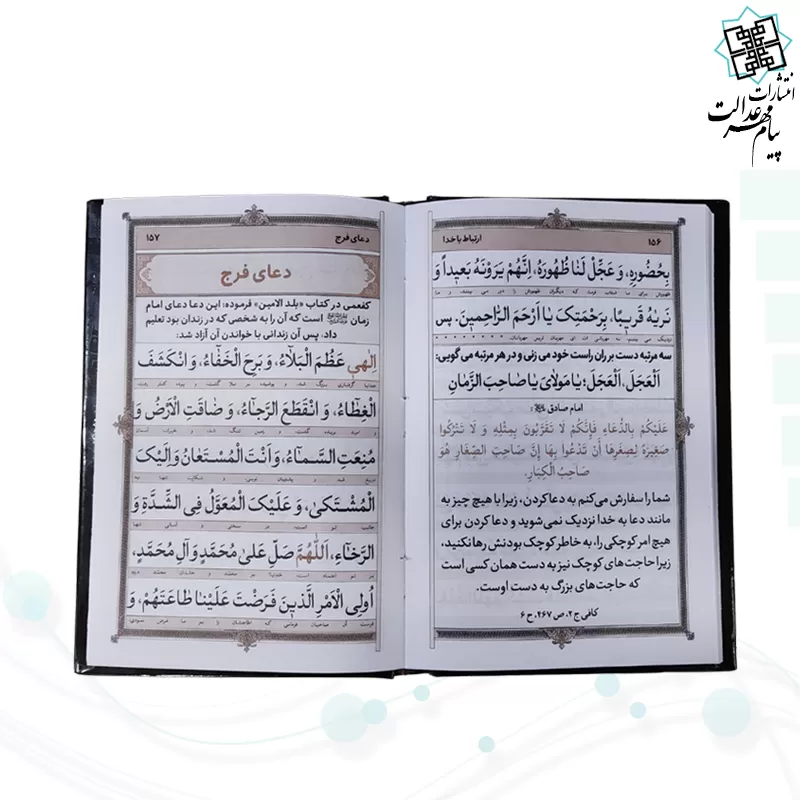 انتشارات
پیام مهر عدالت
۱۵۶
ارتباط با خدا
بِحُضُورِهِ، وَ عَجِّلْ لَنٰا ظُهُورَهُ، اِنَّهُمْ یَرَوْنَهُ بَعیٖداً وَ
نَرٰیهُ قَریٖبًا، بِرَحْمَتِکَ یٰا اَرْحَمَ الرّٰاحِمیٖنَ. پس
سه مرتبه دست بر ران راست خود می زنی و در هر مرتبه می گویی:
اَلْعَجَلَ، اَلْعَجَلَ؛ یٰا مَوْلایَ یٰا صٰاحِبَ الزَّمٰانِ
امام صادق
عَلَیْکُمْ بِالدُّعَاءِ فَإِنَّکُمْ لَا تَقَرَّبُونَ بِمِثْلِهِ وَ لَا تَتْرُکُوا
صَغِیرَةً لِصِغَرِهَا أَنْ تَدْعُوا بِهَا إِنَّ صَاحِبَ الصِّغَارِ هُوَ
صَاحِبُ الْکِبَارِ.
شما را سفارش می‌کنم به دعا کردن، زیرا با هیچ چیز به
مانند دعا به خدا نزدیک نمی شوید و دعا کردن برای
هیچ امر کوچکی را، به خاطر کوچک بودنش رها نکنید،
زیرا حاجت های کوچک نیز به دست همان کسی است
که حاجت های بزرگ به دست اوست.
کافی ج ۲، ص ۴۶۷، ح ۶
دعای فرج
۱۵۷
دعای فرج
کفعمی در کتاب «بلد الامین» فرموده: این دعا دعای امام
زمان است که آن را به شخصی که در زندان بود تعلیم
داد، پس آن زندانی با خواندن آن آزاد شد:
اِلٰهیٖ عَظُمَ الْبَلٰاءُ، وَ بَرِحَ الْخَفٰاءُ، وَ انْکَشَفَ
الْغِطٰاءُ، وَ انْقَطَعَ الرَّجٰاءُ، وَ ضٰاقَتِ الْاَرْضُ وَ
مُنِعَتِ السَّمٰاءُ، وَ اَنْتَ الْمُسْتَعٰانُ وَ اِلَیْکَ
الْمُشْتَکیٰ، وَ عَلَیْکَ الْمُعَوَّلُ فِی الشِّدَّةِ وَ
الرَّخٰاءِ، اَللّٰهُمَّ صَلِّ عَلیٰ مُحَمَّدٍ وَ آلِ مُحَمَّدٍ،
اُولِی الْاَمْرِ الَّذیٖنَ فَرَضْتَ عَلَیْنٰا طٰاعَتَهُمْ، وَ